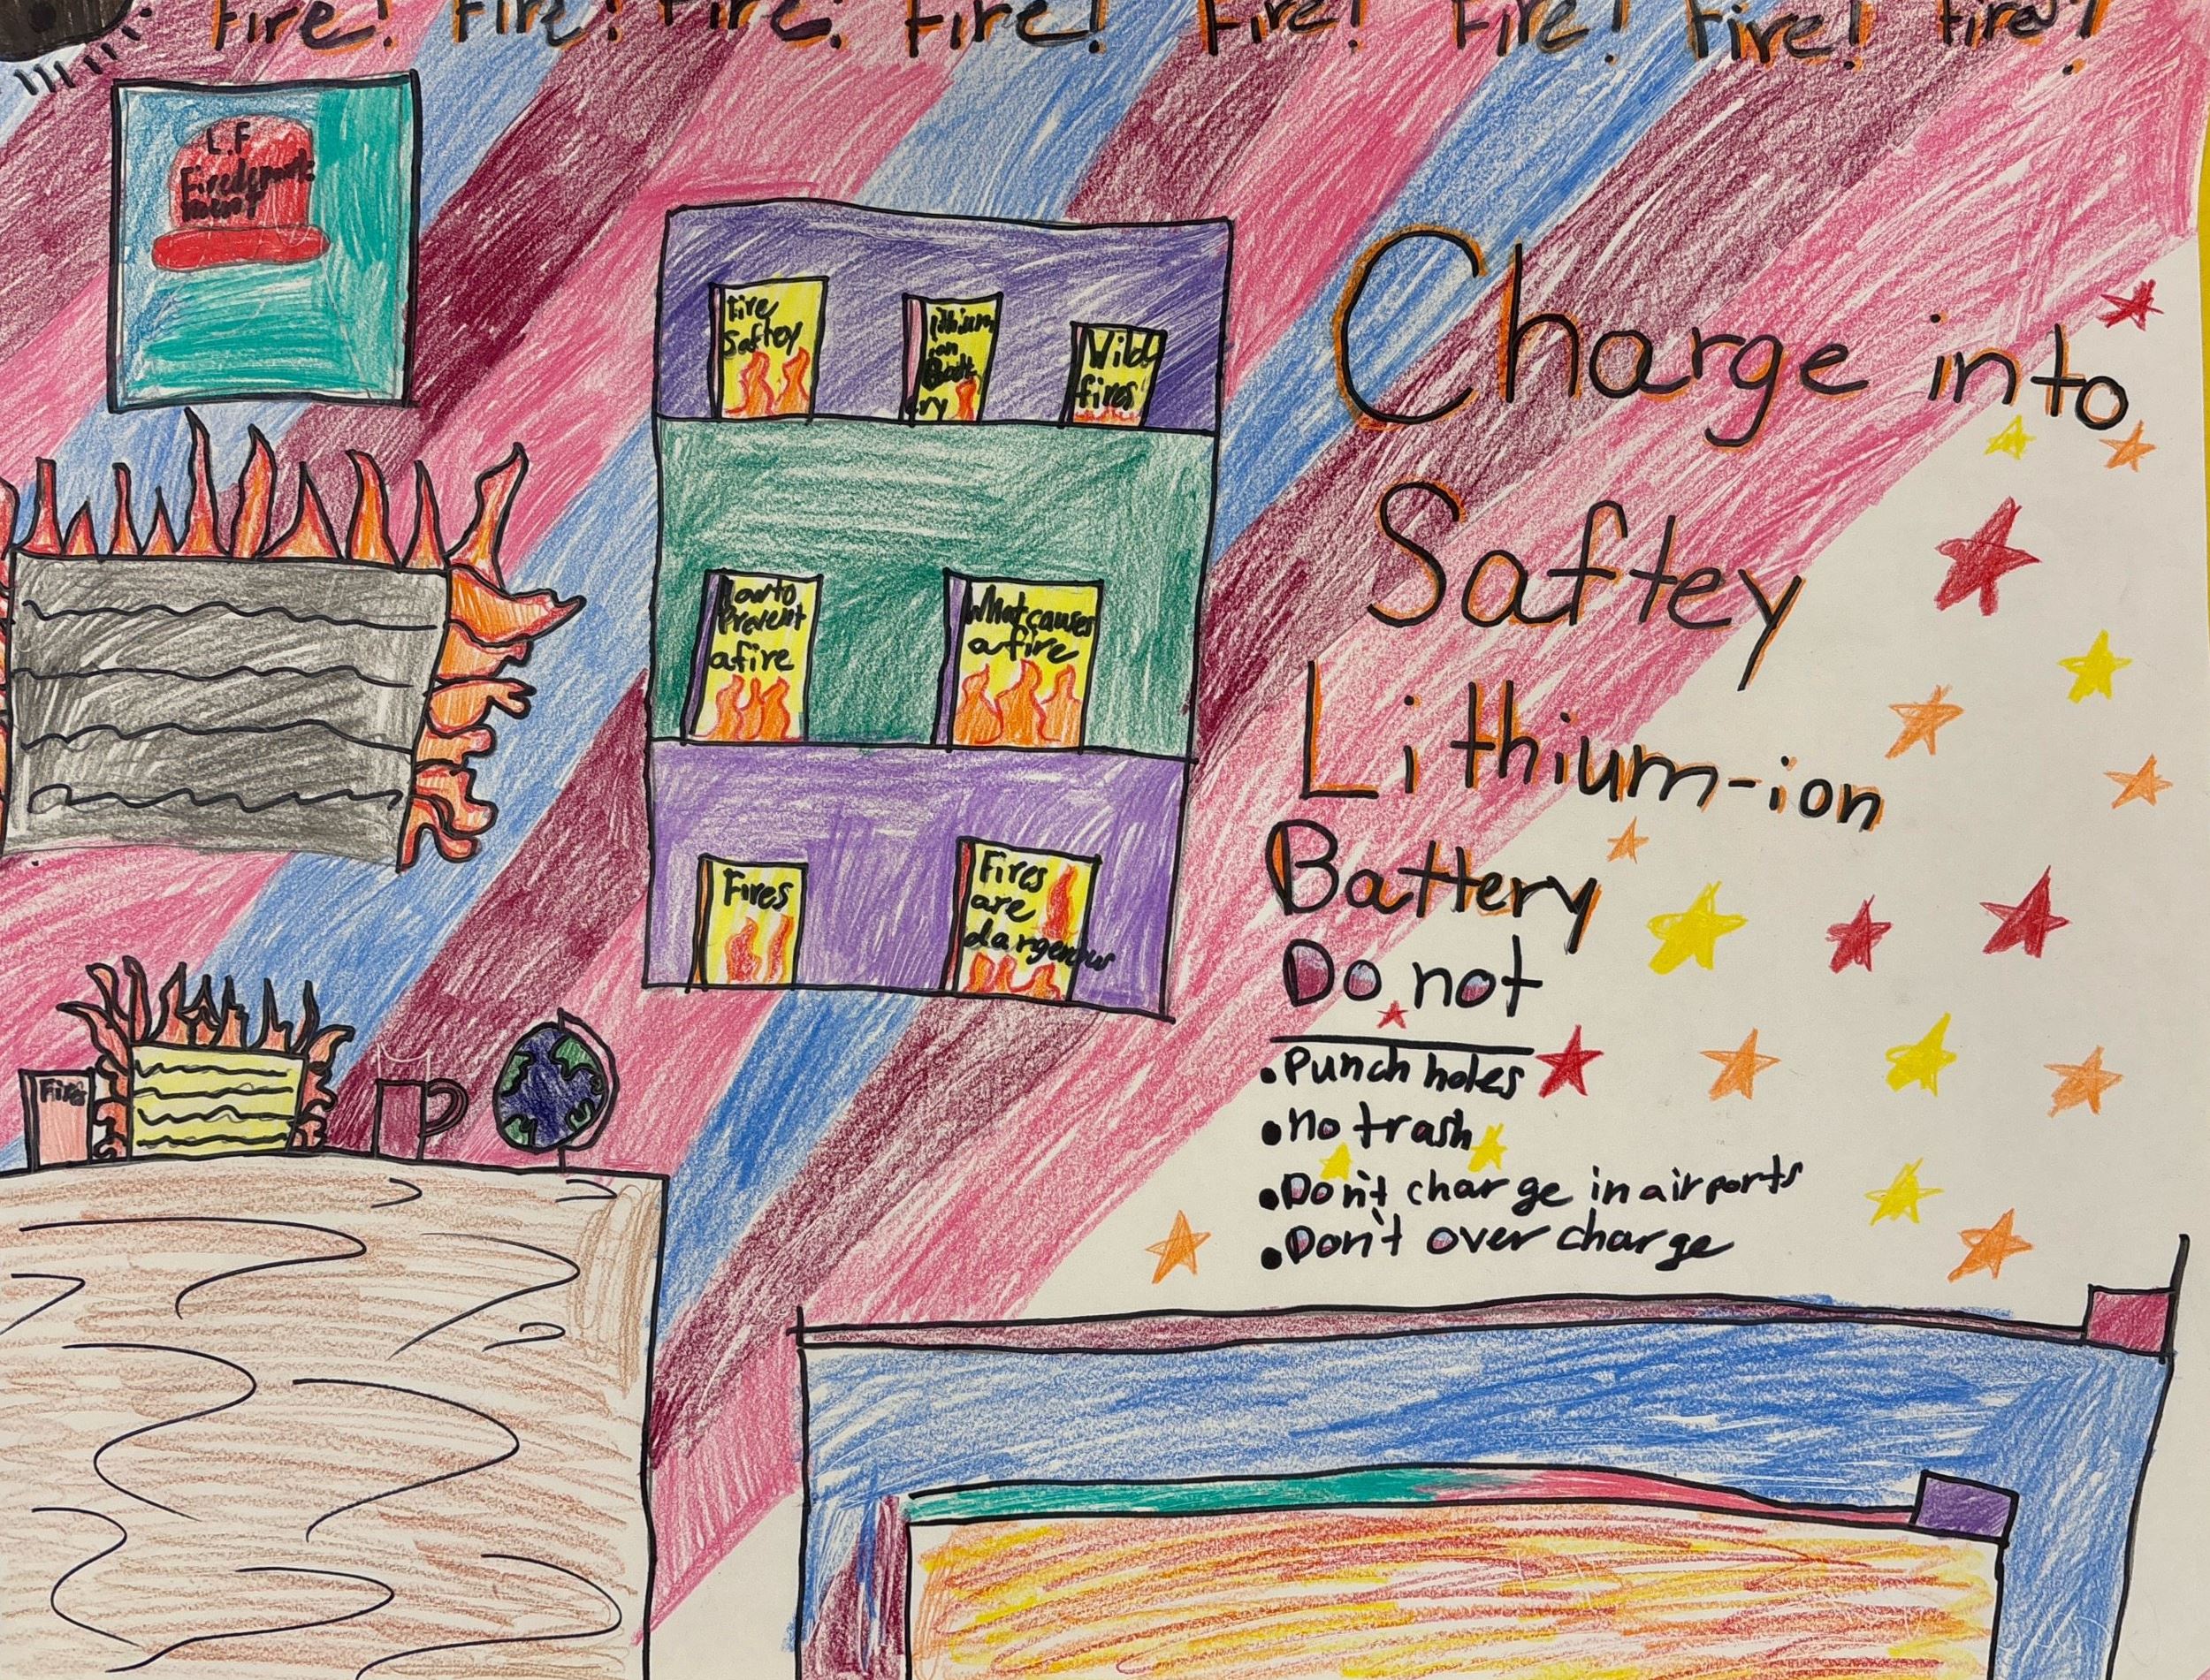 Fire! Fire! Fire! Fire! Fire! Fire! Fire! Fire!
L.F
Firedepart-
ment
Fire
Saftey
lithium
ion
Batt
ry
Wild
fires
How to
Prevent
a fire
What causes
a fire
Fires
Fires
are
dargenous
Fire
Charge into
Saftey
Lithium-ion
Battery
Do not
• Punch holes
• no trash
• Don't charge in airports
• Don't over charge